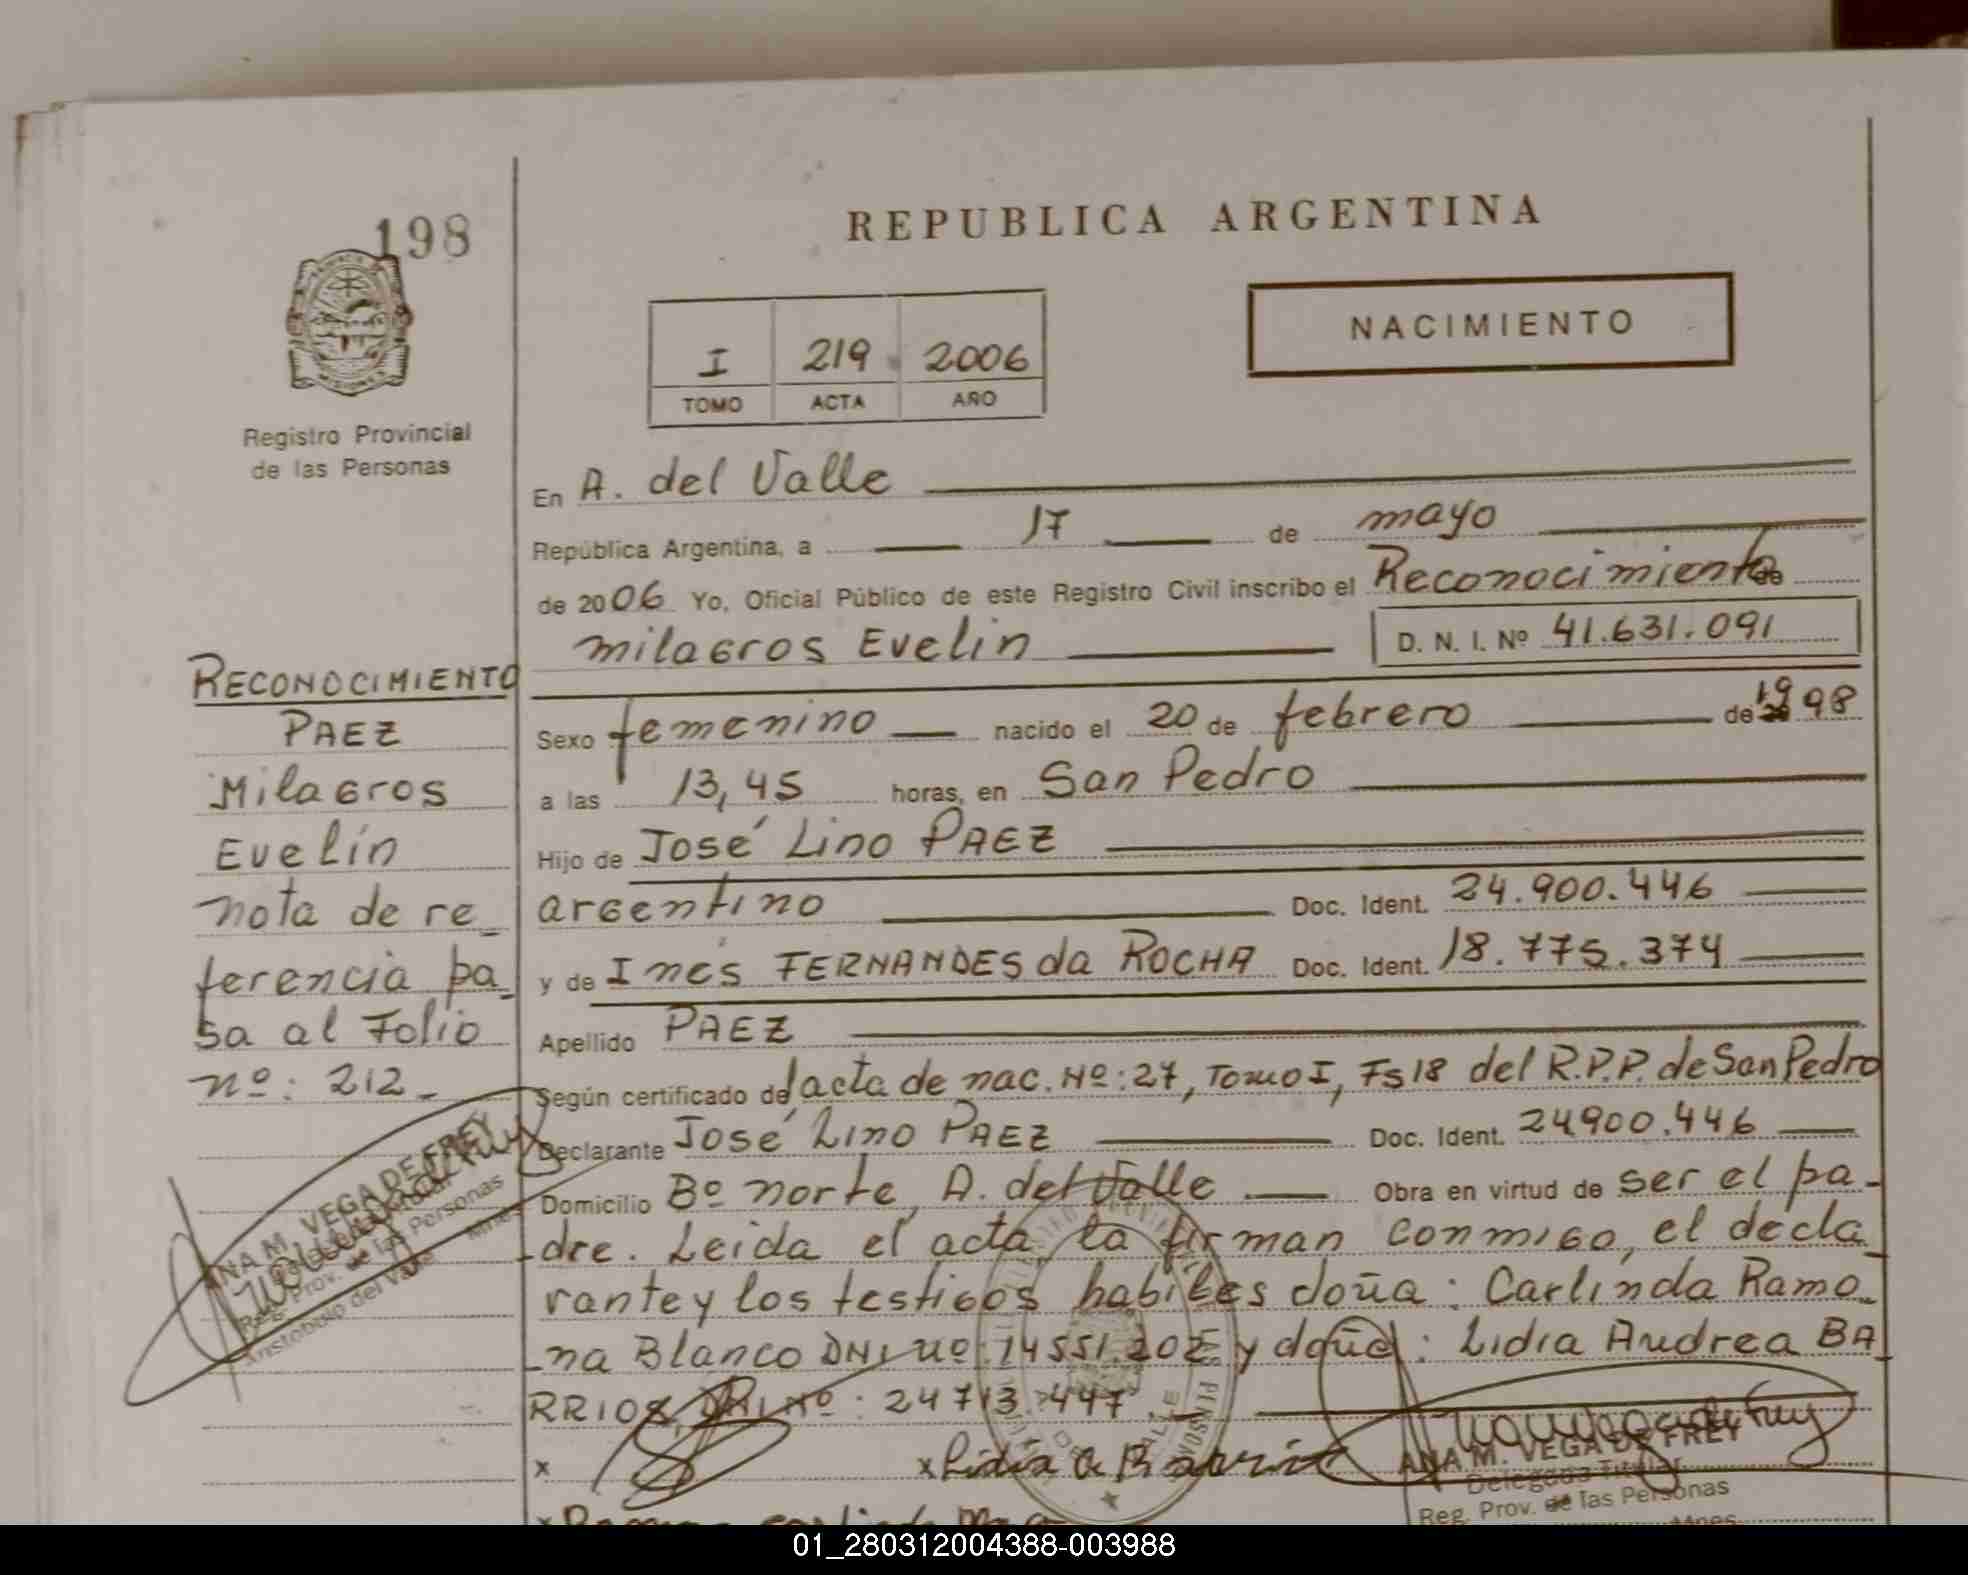 198
REPUBLICA ARGENTINA
NACIMIENTO
I 219 2006
TOMO ACTA AÑO
Registro Provincial
de las Personas
En A. del Valle
República Argentina, a 17 de mayo
de 2006 Yo, Oficial Público de este Registro Civil inscribo el Reconocimiento de
Milagros Evelin D. N. I. Nº 41.631.091
Sexo femenino nacido el 20 de febrero de 1998
a las 13,45 horas, en San Pedro
Hijo de José Lino PAEZ
argentino Doc. Ident. 24.900.446
y de Inés FERNANDES da ROCHA Doc. Ident. 18.775.374
Apellido PAEZ
Según certificado de acta de nac. Nº: 27, Tomo I, Fs 18 del R.P.P. de San Pedro
Declarante José Lino PAEZ Doc. Ident. 24900.446
Domicilio Bº norte, A. del Valle Obra en virtud de ser el pa-
dre. Leida el acta, la firman conmigo, el decla
rante y los testigos habiles doña: Carlinda Ramo
na Blanco DNI nº: 14551.202 y doña: Lidia Andrea BA
RRIOS, DNI Nº: 24713.447.
x x Lidia A Barrios
ANA M. VEGA DE FREY
Delegada Titular
Reg. Prov. de las Personas
Mnes
RECONOCIMIENTO
PAEZ
Milagros
Evelín
nota de re
ferencia pa
sa al Folio
nº: 212.
ANA M. VEGA DE FREY
Reg. Prov. de las Personas
Aristobulo del Valle Mnes
01_280312004388-003988